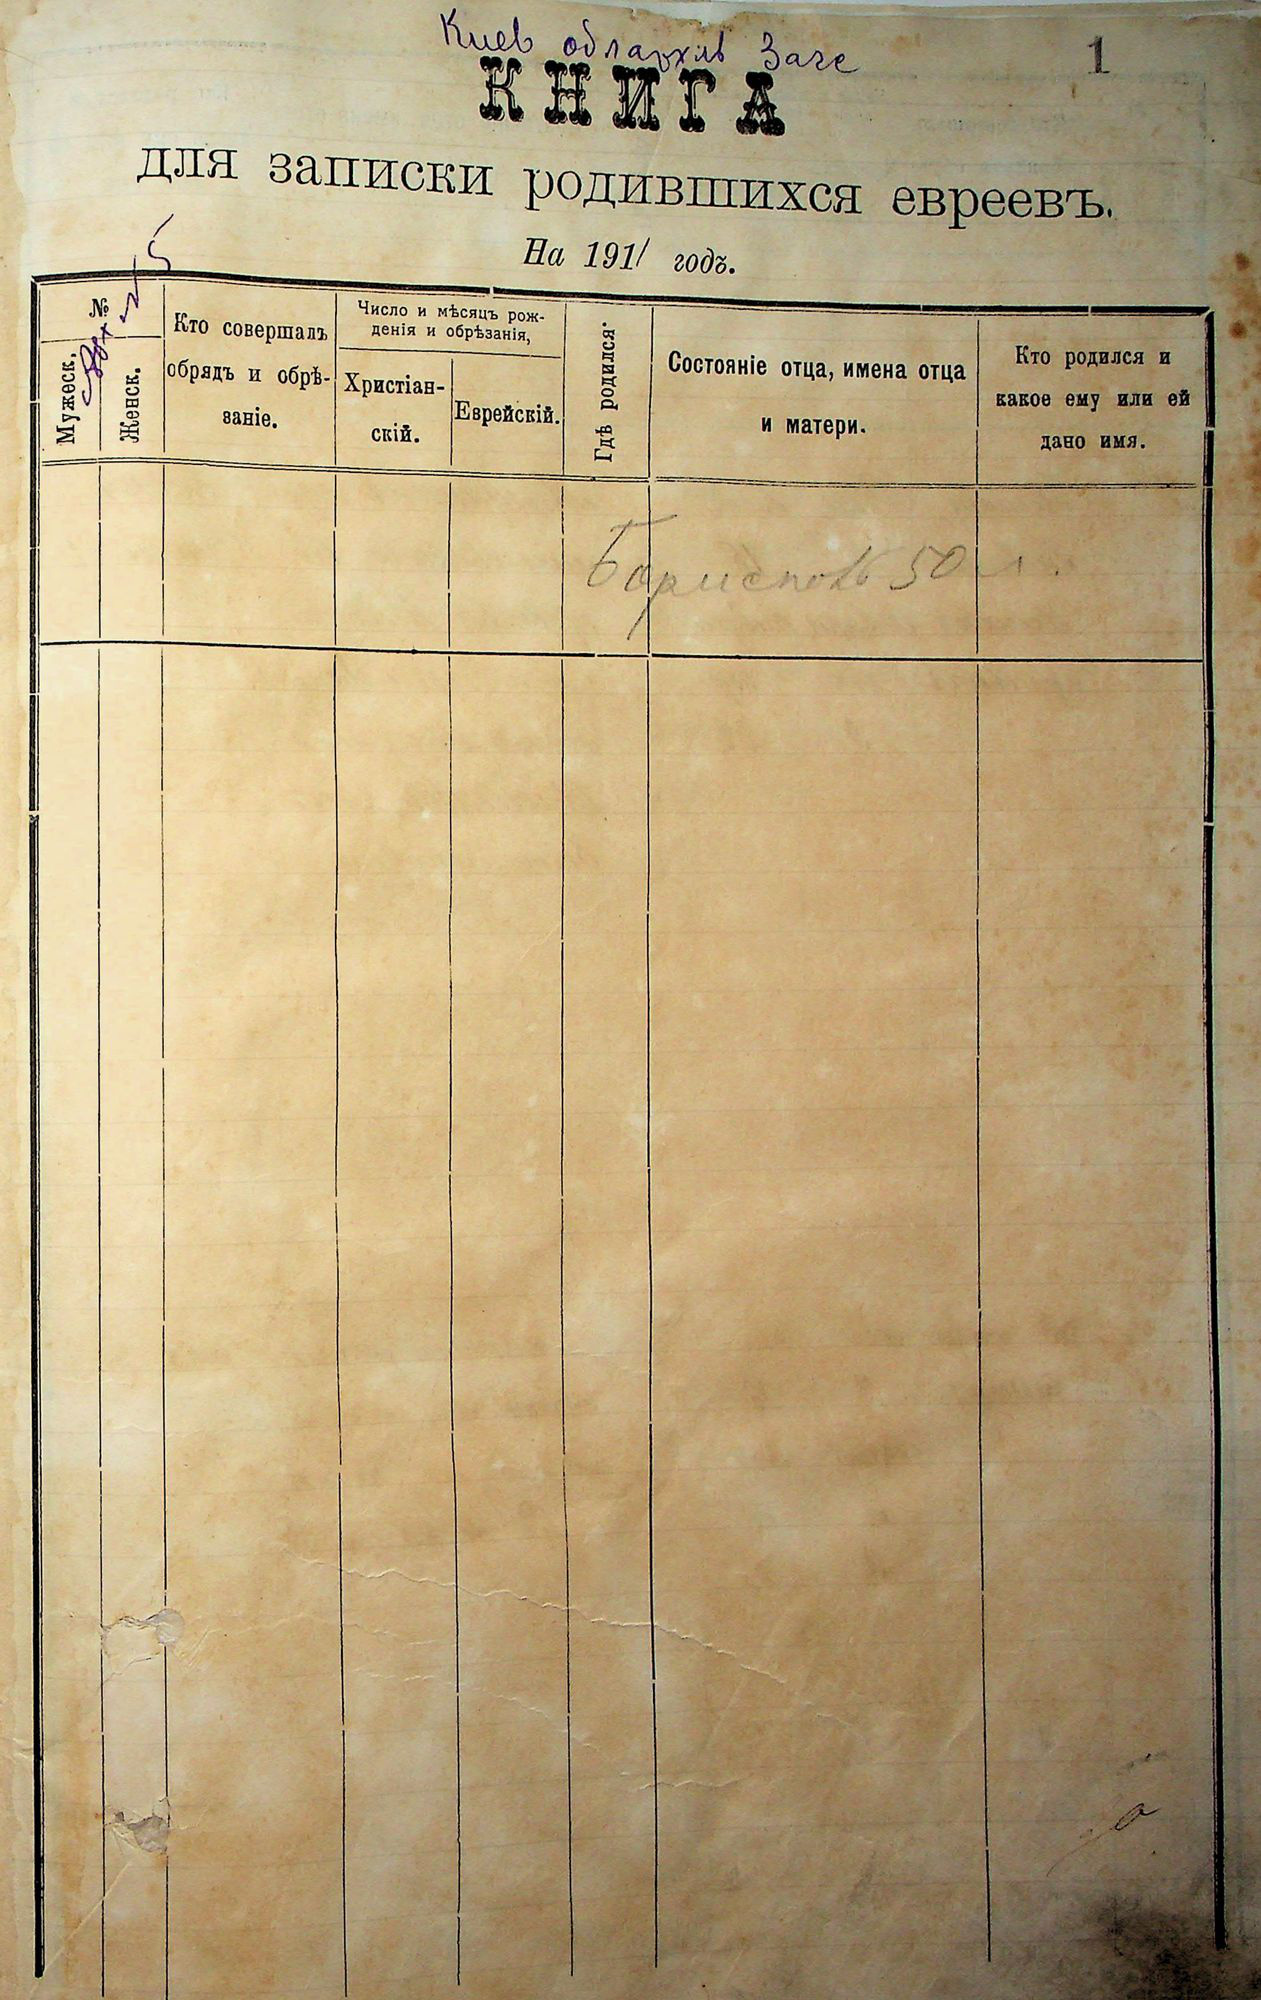 Киев облархив Заче
1
КНИГА
для записки родившихся евреевъ.
На 1911 годъ.
№
Мужеск.
Женск.
Кто совершалъ
обрядъ и обрѣ-
заніе.
Число и мѣсяцъ рож-
денія и обрѣзанія,
Христіан-
скій.
Еврейскій.
Гдѣ родился.
Состояніе отца, имена отца
и матери.
Кто родился и
какое ему или ей
дано имя.
Бориспол 50 л.